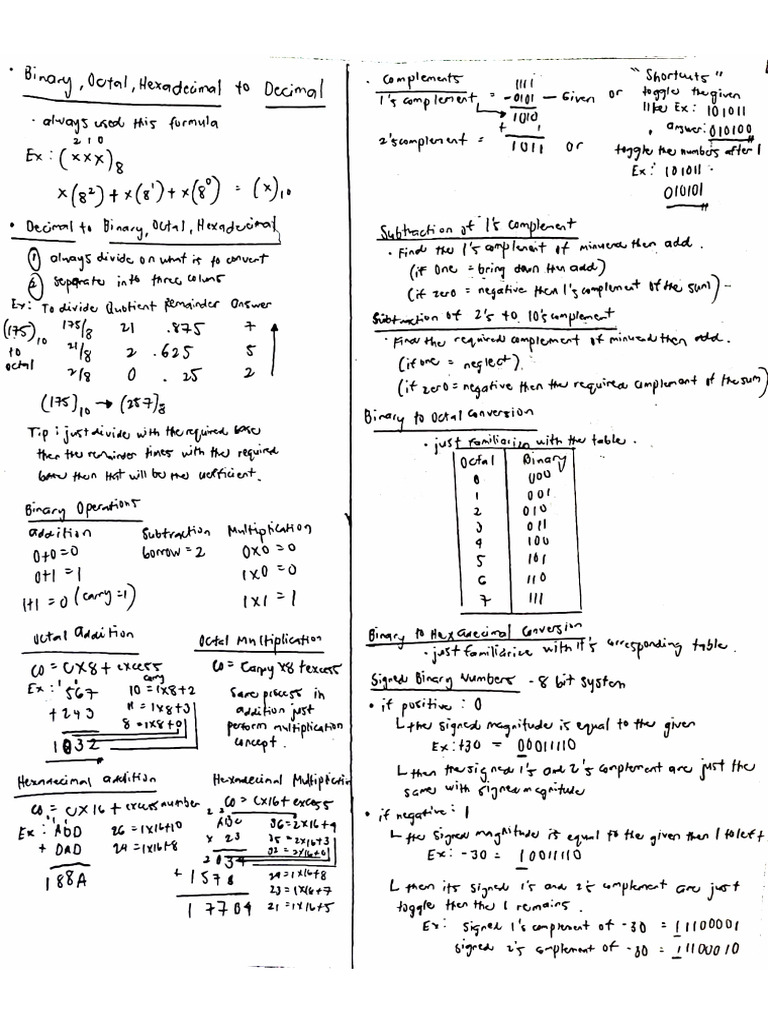 • Binary, Octal, Hexadecimal to Decimal
• always used this formula
2 1 0
Ex: (xxx)8
x(8²) + x(8¹) + x(8⁰) = (x)10
• Decimal to Binary, Octal, Hexadecimal
① always divide on what is to convert
② separate into three colums
Ex: To divide Quotient Remainder Answer
(175)10 175/8 21 .875 7
to 21/8 2 .625 5
octal 2/8 0 .25 2
(175)10 → (257)8
Tip: just divide with the required base
then the remainder times with the required
base then that will be the coefficient.
Binary Operations
addition Subtraction Multiplication
0+0=0 borrow = 2 0x0=0
0+1=1 1x0=0
1+1=0 (carry=1) 1x1=1
Octal addition Octal Multiplication
CO = CX8 + excess CO = Carry x8 + excess
carry
Ex: 567 10 = 1x8+2 Same process in
+243 11 = 1x8+3 addition just
8 = 1x8+0 perform multiplication
1032 concept.
Hexadecimal addition Hexadecimal Multiplication
CO = CX16 + excess number CO = CX16 + excess
Ex: ADD 26 = 1x16+10 ABC 36=2x16+4
+ DAD 24 = 1x16+8 x 23 35=2x16+3
188A 2034 32=2x16+0
+1578 24=1x16+8
23=1x16+7
17704 21=1x16+5
• Complements
1's complement = 1111 - 0101 — Given or
1010
+ 1
2's complement = 1011 or
"Shortcuts"
toggle the given
like Ex: 101011
• answer: 010100
toggle the numbers after 1
Ex: 101011
010101
Subtraction of 1's complement
• Find the 1's complement of minuend then add.
(if one = bring down then add)
(if zero = negative then 1's complement of the sum)
Subtraction of 2's to 10's complement
• Find the required complement of minuend then add.
(if one = neglect)
(if zero = negative then the required complement of the sum)
Binary to Octal Conversion
• just familiarize with the table.
Octal Binary
0 000
1 001
2 010
3 011
4 100
5 101
6 110
7 111
Binary to Hexadecimal Conversion
• just familiarize with it's corresponding table.
Signed Binary Numbers - 8 bit system
• if positive : 0
the signed magnitude is equal to the given
Ex: +30 = 00011110
then the signed 1's and 2's complement are just the
same with signed magnitude
• if negative : 1
the signed magnitude is equal to the given then 1 to left.
Ex: -30 = 10011110
then its signed 1's and 2's complement are just
toggle then the 1 remains.
Ex: Signed 1's complement of -30 = 11100001
signed 2's complement of -30 = 11100010